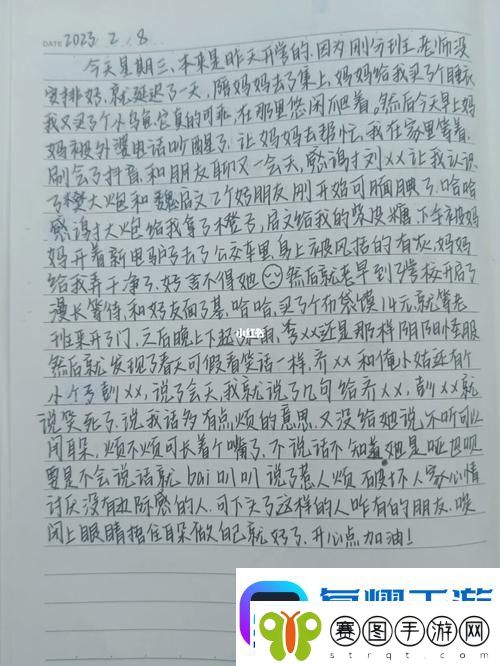 DATE 2023 2 8
今天星期三、本来是昨天开学的、因为刚分班、老师没
安排好、就延迟了一天、陪妈妈去了集上、妈妈给我买了个睡衣
我又买了个小乌龟、它真的可乖、在那里悠闲爬着。然后今天早上妈
妈被外婆电话叫醒了、让妈妈去帮忙、我在家里等着、
刷会了抖音、和朋友聊又一会天、感谢刘××让我认识
了樊大炮和魏启文2个好朋友、刚开始可腼腆了、哈哈
感谢大炮给我拿了橙子、启文给我的柴皮糖、下午被妈
妈开着新电驴子去了公交车里、身上被风括的有灰、妈妈
给我弄干净了、好舍不得她 然后就老早到了学校开启了
漫长等待、和好友面了基、哈哈、买了个布袋馍14元、就等老
班来开了门、之后晚上下起雨、李××还是那样阴阳怪服
然后就发现了春天可假看笑话一样、乔××和俺小姑还有个
小个子彭××、说了会天、我就说了几句给乔××、彭××就
说笑死了、说我话多有点烦的意思、又没给她说、不听可以
闭耳朵、烦不烦可长着个嘴了、不说话不知道她是哑巴呗
要是不会说话就bai叭叭说了惹人烦 破坏人家心情
讨厌没有边际感的人、可下头了这样的人咋有的朋友、唉
闭上眼睛捂住耳朵做自己就好了、开心点加油!
小红书
赛图手游网
strqt.com